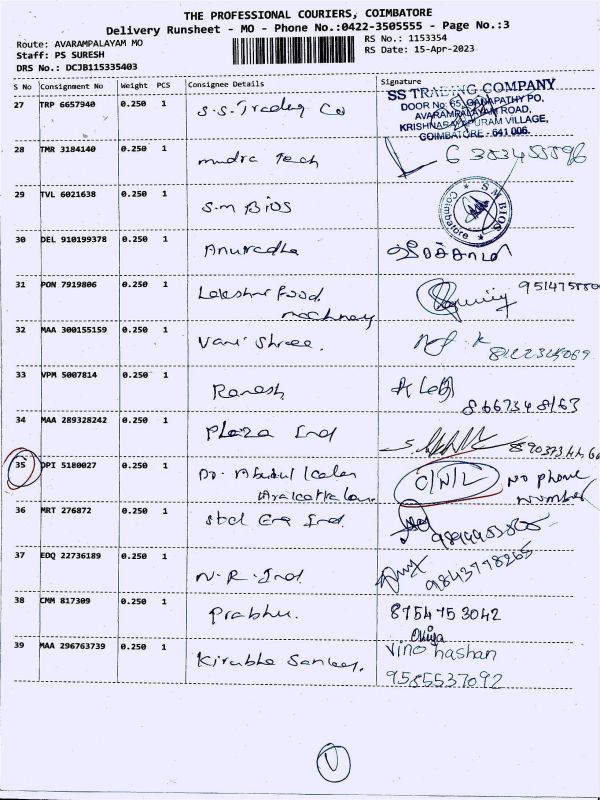 THE PROFESSIONAL COURIERS, COIMBATORE
Delivery Runsheet - MO - Phone No.:0422-3505555 - Page No.:3
Route: AVARAMPALAYAM MO
RS No.: 1153354
Staff: PS SURESH
RS Date: 15-Apr-2023
DRS No.: DCJB115335403
S No Consignment No Weight PCS Consignee Details Signature
27 TRP 6657940 0.250 1 S.S. Trading Co
SS TRADING COMPANY
DOOR No: 65, GANAPATHY PO,
AVARAMPALAYAM ROAD,
KRISHNARAYAPURAM VILLAGE,
COIMBATORE - 641 006.
28 TMR 3184140 0.250 1 mudra Tech
29 TVL 6021638 0.250 1 S.M BIOS
S M BIOS
Coimbatore
30 DEL 910199378 0.250 1 Anuradha
31 PON 7919806 0.250 1 Lakshmi Food
machinery
32 MAA 300155159 0.250 1 Vani Shree.
33 VPM 5007814 0.250 1 Ramesh
34 MAA 289328242 0.250 1 Plaza Ind
35 OPI 5180027 0.250 1 Dr. Abdul
C/N/L No phone
number
36 MRT 276872 0.250 1 Ind.
37 EDQ 22736189 0.250 1 N.R. Ind
9843778265
38 CMM 817309 0.250 1 Prabhu. 8754753042
39 MAA 296763739 0.250 1 Kirubha
Vinothashan
9585537092